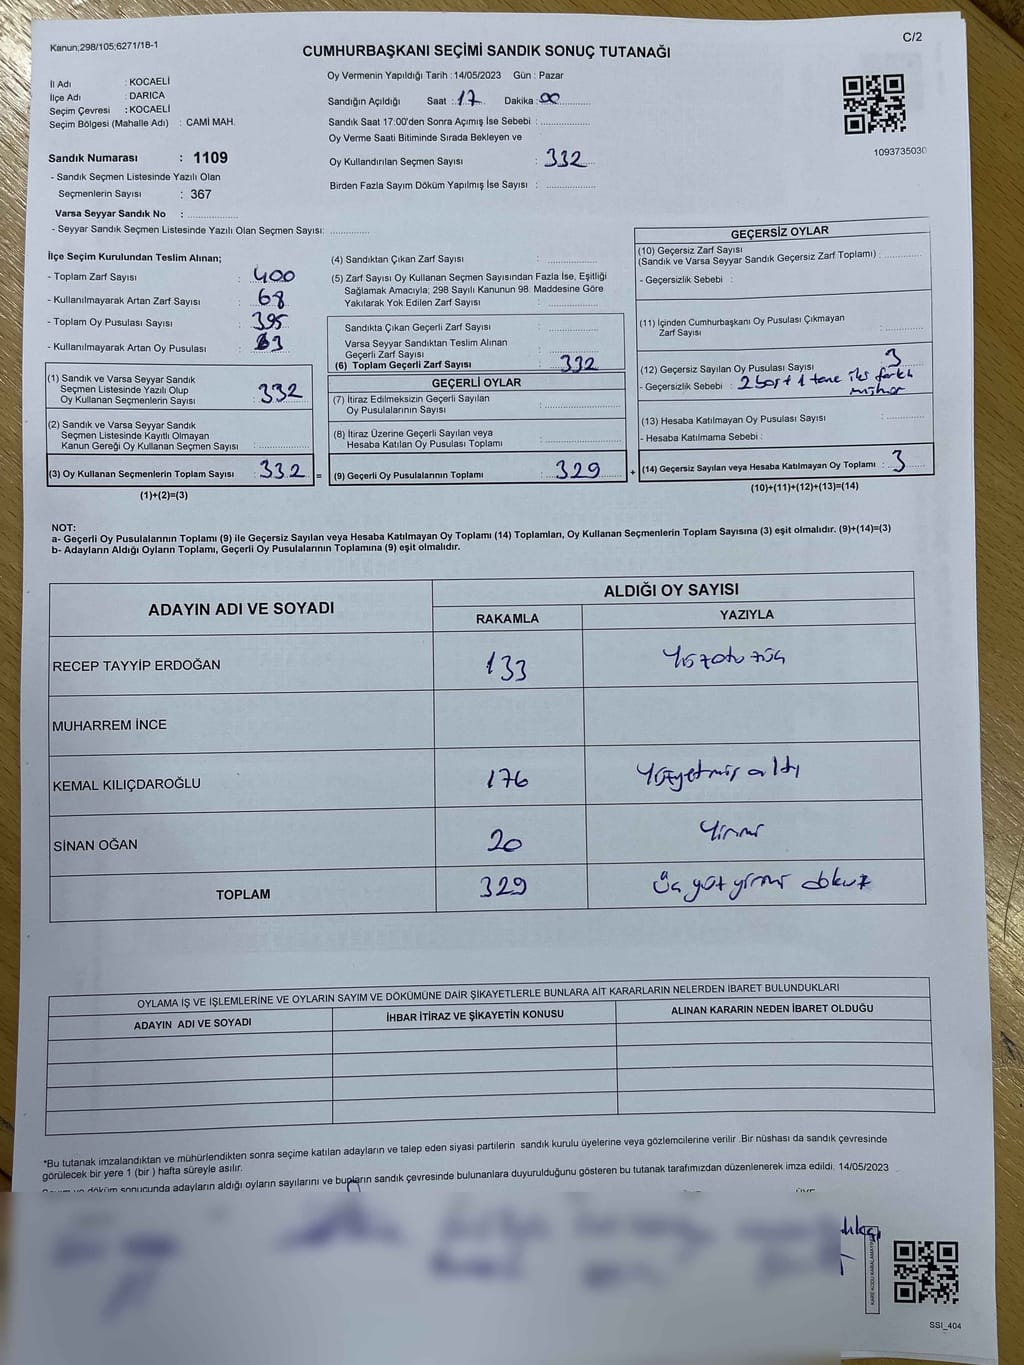 Kanun;298/105;6271/18-1
C/2
CUMHURBAŞKANI SEÇİMİ SANDIK SONUÇ TUTANAĞI
İl Adı : KOCAELİ
İlçe Adı : DARICA
Seçim Çevresi : KOCAELİ
Seçim Bölgesi (Mahalle Adı) : CAMİ MAH.
Oy Vermenin Yapıldığı Tarih : 14/05/2023 Gün : Pazar
Sandığın Açıldığı Saat : 17 Dakika : 00
Sandık Saat 17:00'den Sonra Açımış İse Sebebi :
Oy Verme Saati Bitiminde Sırada Bekleyen ve
Oy Kullandırılan Seçmen Sayısı : 332
Birden Fazla Sayım Döküm Yapılmış İse Sayısı :
1093735030
Sandık Numarası : 1109
- Sandık Seçmen Listesinde Yazılı Olan
Seçmenlerin Sayısı : 367
Varsa Seyyar Sandık No :
- Seyyar Sandık Seçmen Listesinde Yazılı Olan Seçmen Sayısı:
İlçe Seçim Kurulundan Teslim Alınan;
- Toplam Zarf Sayısı : 400
- Kullanılmayarak Artan Zarf Sayısı : 68
- Toplam Oy Pusulası Sayısı : 395
- Kullanılmayarak Artan Oy Pusulası : 63
(1) Sandık ve Varsa Seyyar Sandık
Seçmen Listesinde Yazılı Olup
Oy Kullanan Seçmenlerin Sayısı : 332
(2) Sandık ve Varsa Seyyar Sandık
Seçmen Listesinde Kayıtlı Olmayan
Kanun Gereği Oy Kullanan Seçmen Sayısı :
(3) Oy Kullanan Seçmenlerin Toplam Sayısı : 332 =
(1)+(2)=(3)
(4) Sandıktan Çıkan Zarf Sayısı :
(5) Zarf Sayısı Oy Kullanan Seçmen Sayısından Fazla İse, Eşitliği
Sağlamak Amacıyla; 298 Sayılı Kanunun 98. Maddesine Göre
Yakılarak Yok Edilen Zarf Sayısı :
Sandıkta Çıkan Geçerli Zarf Sayısı :
Varsa Seyyar Sandıktan Teslim Alınan
Geçerli Zarf Sayısı :
(6) Toplam Geçerli Zarf Sayısı : 332
GEÇERLİ OYLAR
(7) İtiraz Edilmeksizin Geçerli Sayılan
Oy Pusulalarının Sayısı :
(8) İtiraz Üzerine Geçerli Sayılan veya
Hesaba Katılan Oy Pusulası Toplamı :
(9) Geçerli Oy Pusulalarının Toplamı : 329 +
GEÇERSİZ OYLAR
(10) Geçersiz Zarf Sayısı
(Sandık ve Varsa Seyyar Sandık Geçersiz Zarf Toplamı) :
- Geçersizlik Sebebi :
(11) İçinden Cumhurbaşkanı Oy Pusulası Çıkmayan
Zarf Sayısı :
(12) Geçersiz Sayılan Oy Pusulası Sayısı : 3
- Geçersizlik Sebebi : 2 boş + 1 tane iki farklı
mühür
(13) Hesaba Katılmayan Oy Pusulası Sayısı :
- Hesaba Katılmama Sebebi :
(14) Geçersiz Sayılan veya Hesaba Katılmayan Oy Toplamı : 3
(10)+(11)+(12)+(13)=(14)
NOT:
a- Geçerli Oy Pusulalarının Toplamı (9) ile Geçersiz Sayılan veya Hesaba Katılmayan Oy Toplamı (14) Toplamları, Oy Kullanan Seçmenlerin Toplam Sayısına (3) eşit olmalıdır. (9)+(14)=(3)
b- Adayların Aldığı Oyların Toplamı, Geçerli Oy Pusulalarının Toplamına (9) eşit olmalıdır.
ADAYIN ADI VE SOYADI ALDIĞI OY SAYISI
RAKAMLA YAZIYLA
RECEP TAYYİP ERDOĞAN 133 Yüzotuzüç
MUHARREM İNCE
KEMAL KILIÇDAROĞLU 176 Yüzyetmiş altı
SİNAN OĞAN 20 Yirmi
TOPLAM 329 Üç yüz yirmi dokuz
OYLAMA İŞ VE İŞLEMLERİNE VE OYLARIN SAYIM VE DÖKÜMÜNE DAİR ŞİKAYETLERLE BUNLARA AİT KARARLARIN NELERDEN İBARET BULUNDUKLARI
ADAYIN ADI VE SOYADI İHBAR İTİRAZ VE ŞİKAYETİN KONUSU ALINAN KARARIN NEDEN İBARET OLDUĞU
*Bu tutanak imzalandıktan ve mühürlendikten sonra seçime katılan adayların ve talep eden siyasi partilerin sandık kurulu üyelerine veya gözlemcilerine verilir .Bir nüshası da sandık çevresinde
görülecek bir yere 1 (bir ) hafta süreyle asılır.
döküm sonucunda adayların aldığı oyların sayılarını ve bunların sandık çevresinde bulunanlara duyurulduğunu gösteren bu tutanak tarafımızdan düzenlenerek imza edildi. 14/05/2023
SSI_404